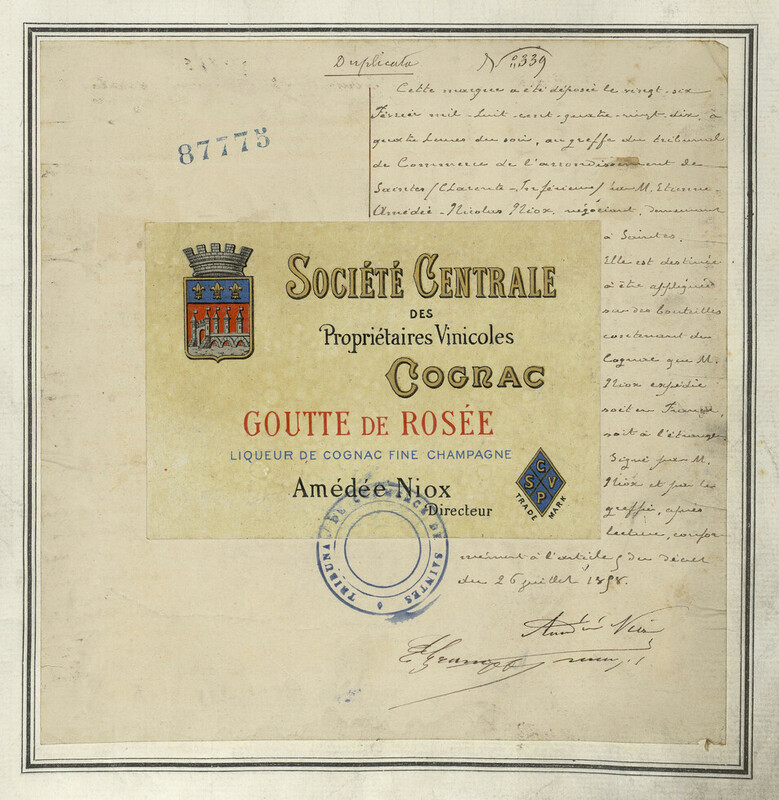 Duplicata
N° 339
Cette marque a été déposée le vingt-six
Février mil-huit-cent-quatre-vingt-dix, à
quatre heures du soir, au greffe du tribunal
de Commerce de l'arrondissement de
Saintes (Charente-Inférieure) par M. Etienne-
Amédée-Nicolas Niox, négociant, demeurant
à Saintes.
Elle est destinée
à être appliquée
sur des bouteilles
contenant du
Cognac que M.
Niox expédie
soit en France,
soit à l'étranger
Signé par M.
Niox et par le
greffier, après
lecture, confor-
mément à l'article 5 du décret
du 26 juillet 1858.
87775
SOCIÉTÉ CENTRALE
DES
Propriétaires Vinicoles
COGNAC
GOUTTE DE ROSÉE
LIQUEUR DE COGNAC FINE CHAMPAGNE
Amédée Niox
Directeur
C S V P
TRADE MARK
TRIBUNAL DE COMMERCE DE SAINTES
Amédée Niox